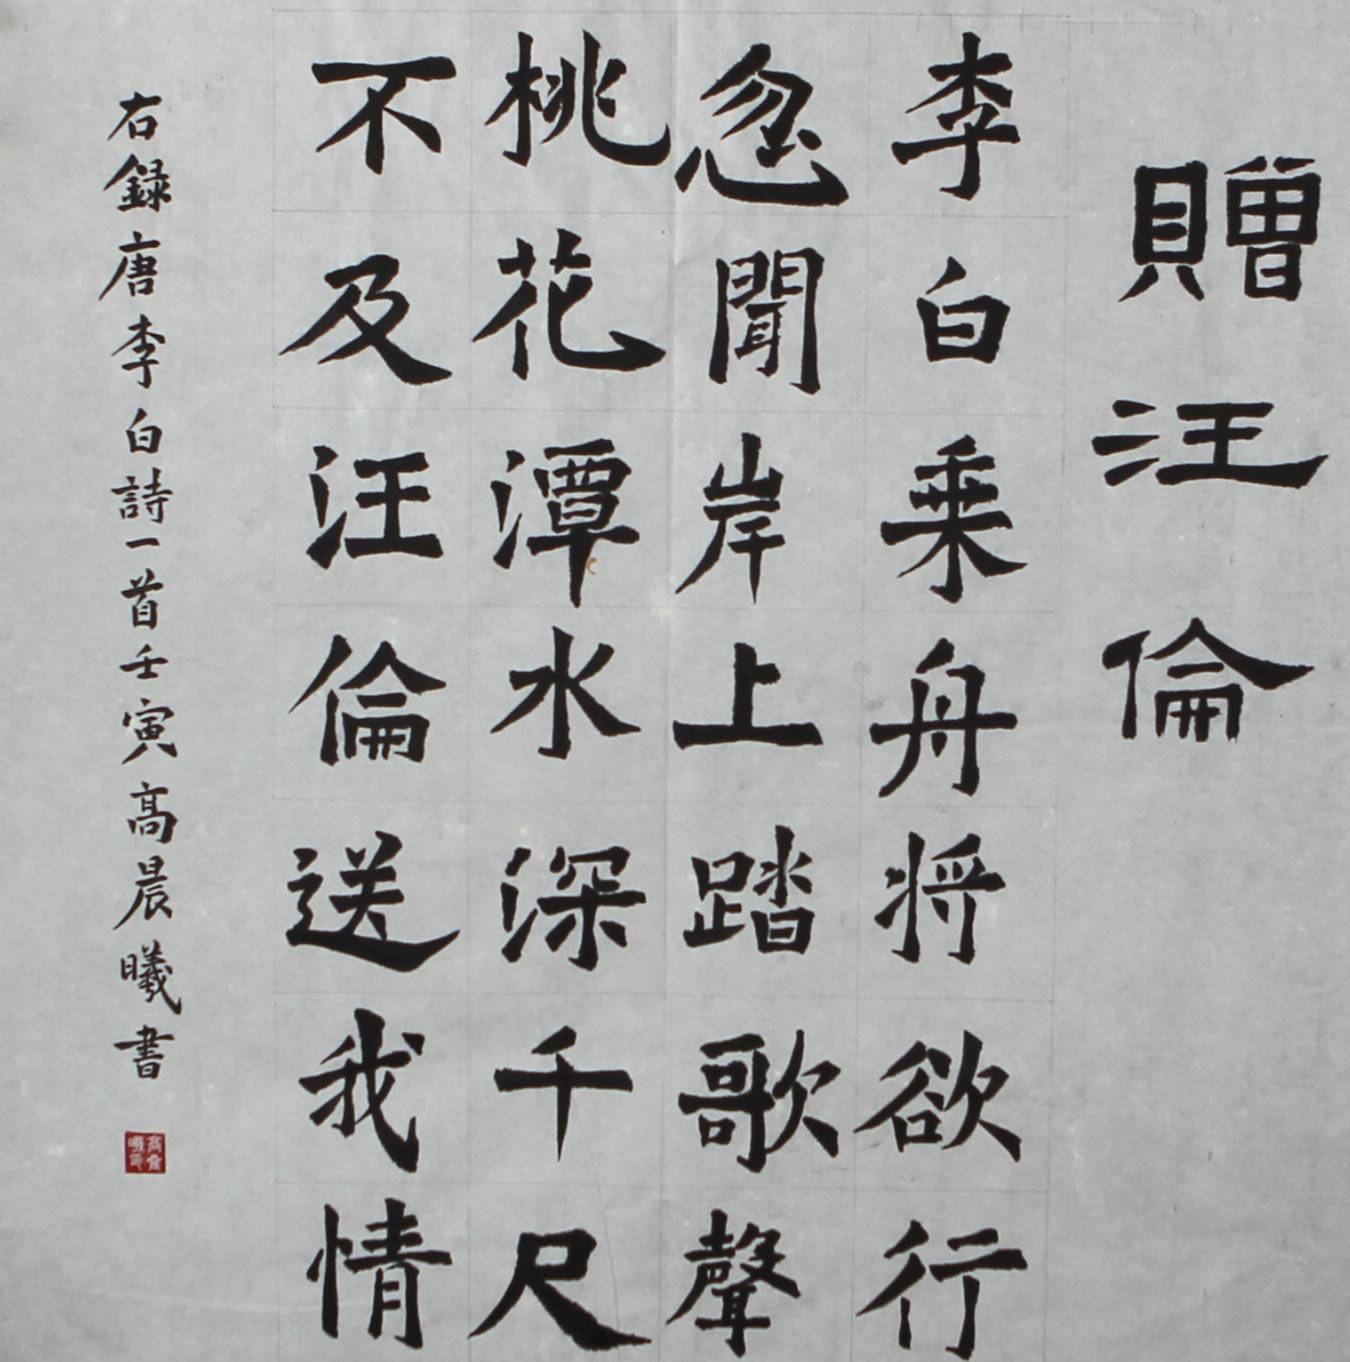 贈汪倫
李白乗舟将欲行
忽聞岸上踏歌聲
桃花潭水深千尺
不及汪倫送我情
右録唐李白詩一首壬寅高晨曦書